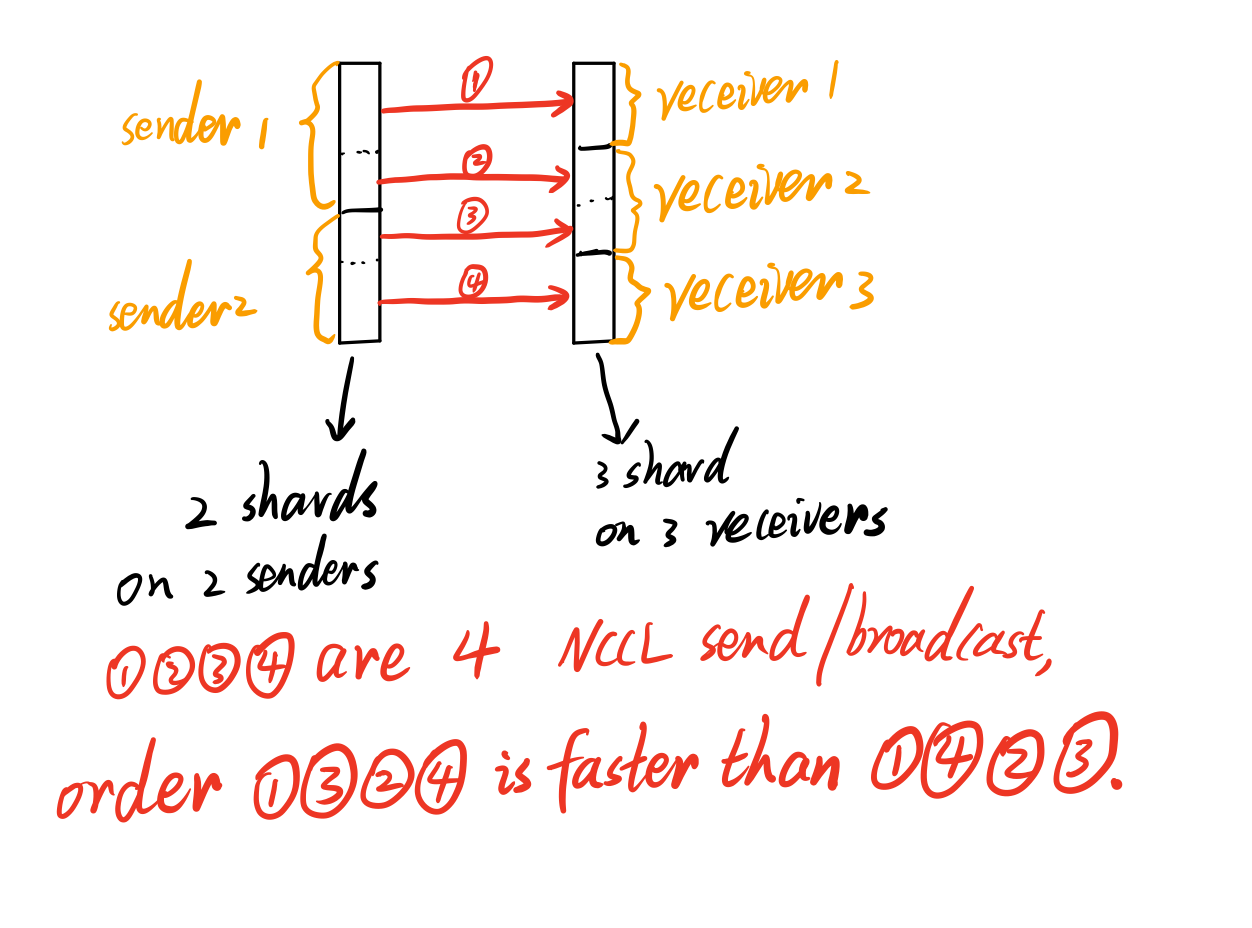 ①
receiver 1
sender 1
②
receiver 2
③
sender 2
④
receiver 3
2 shards
on 2 senders
3 shard
on 3 receivers
①②③④ are 4 NCCL send/broadcast,
order ①③②④ is faster than ①④②③.